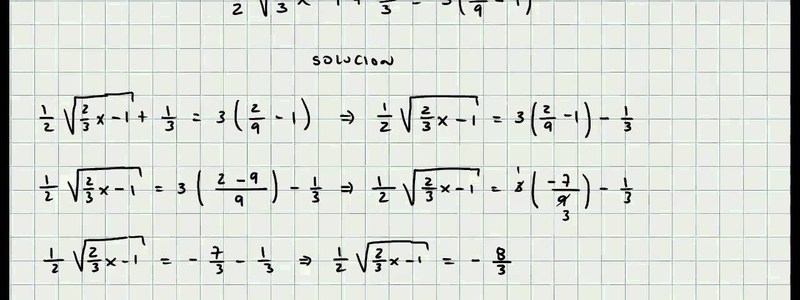 SOLUCION
1/2 √(2/3 x - 1) + 1/3 = 3(2/9 - 1) ⇒ 1/2 √(2/3 x - 1) = 3(2/9 - 1) - 1/3
1/2 √(2/3 x - 1) = 3((2 - 9)/9) - 1/3 ⇒ 1/2 √(2/3 x - 1) = 3̸ 1(-7/9̸ 3) - 1/3
1/2 √(2/3 x - 1) = - 7/3 - 1/3 ⇒ 1/2 √(2/3 x - 1) = - 8/3